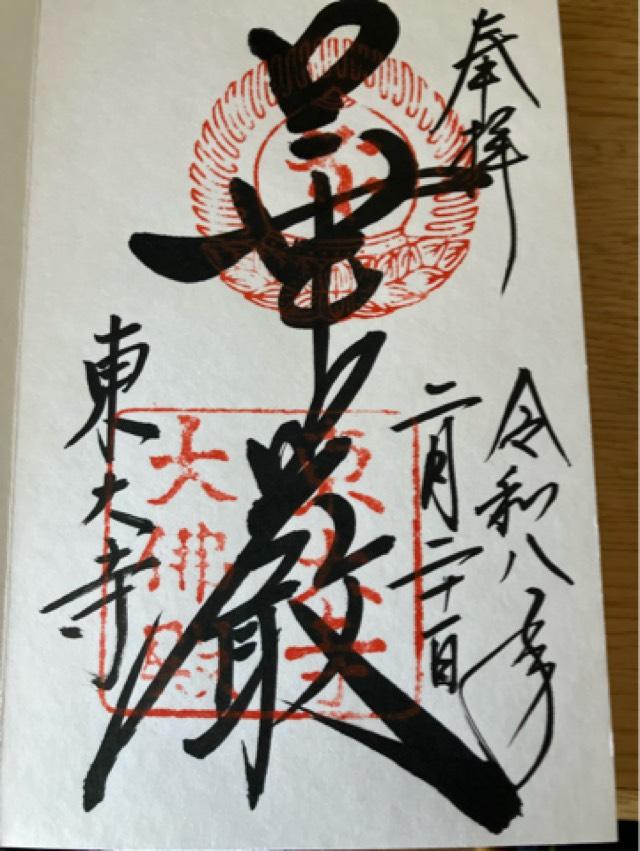 奉拝
令和八年
二月二十一日
華厳
東大寺
東大寺
大佛殿